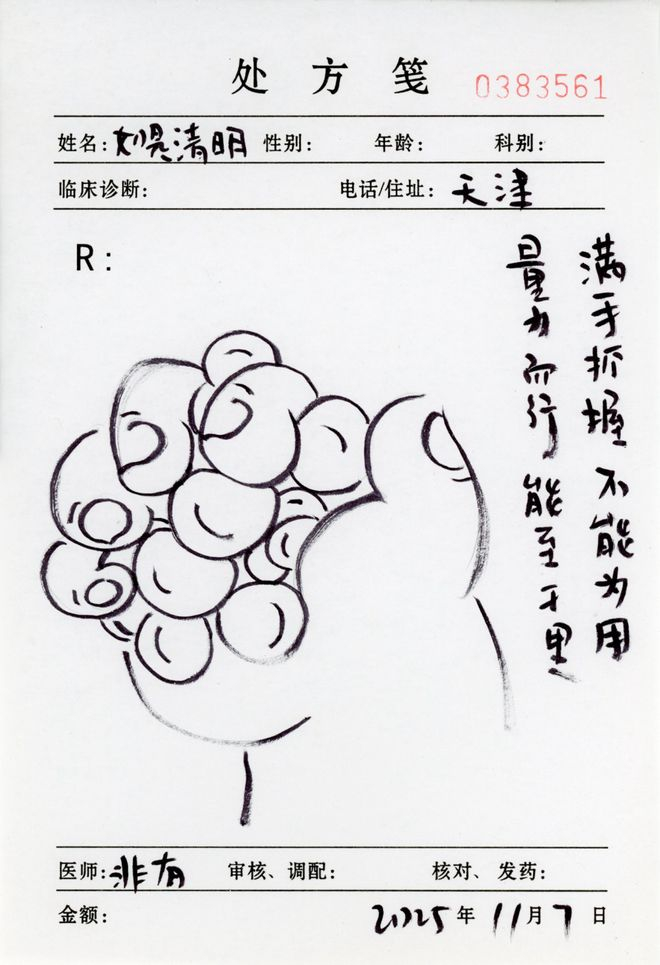 处方笺
0383561
姓名:刘亮清明 性别: 年龄: 科别:
临床诊断: 电话/住址:天津
R:
满手抓握 不能为用
量力而行 能至千里
医师:非有 审核、调配: 核对、发药:
金额: 2025年11月7日